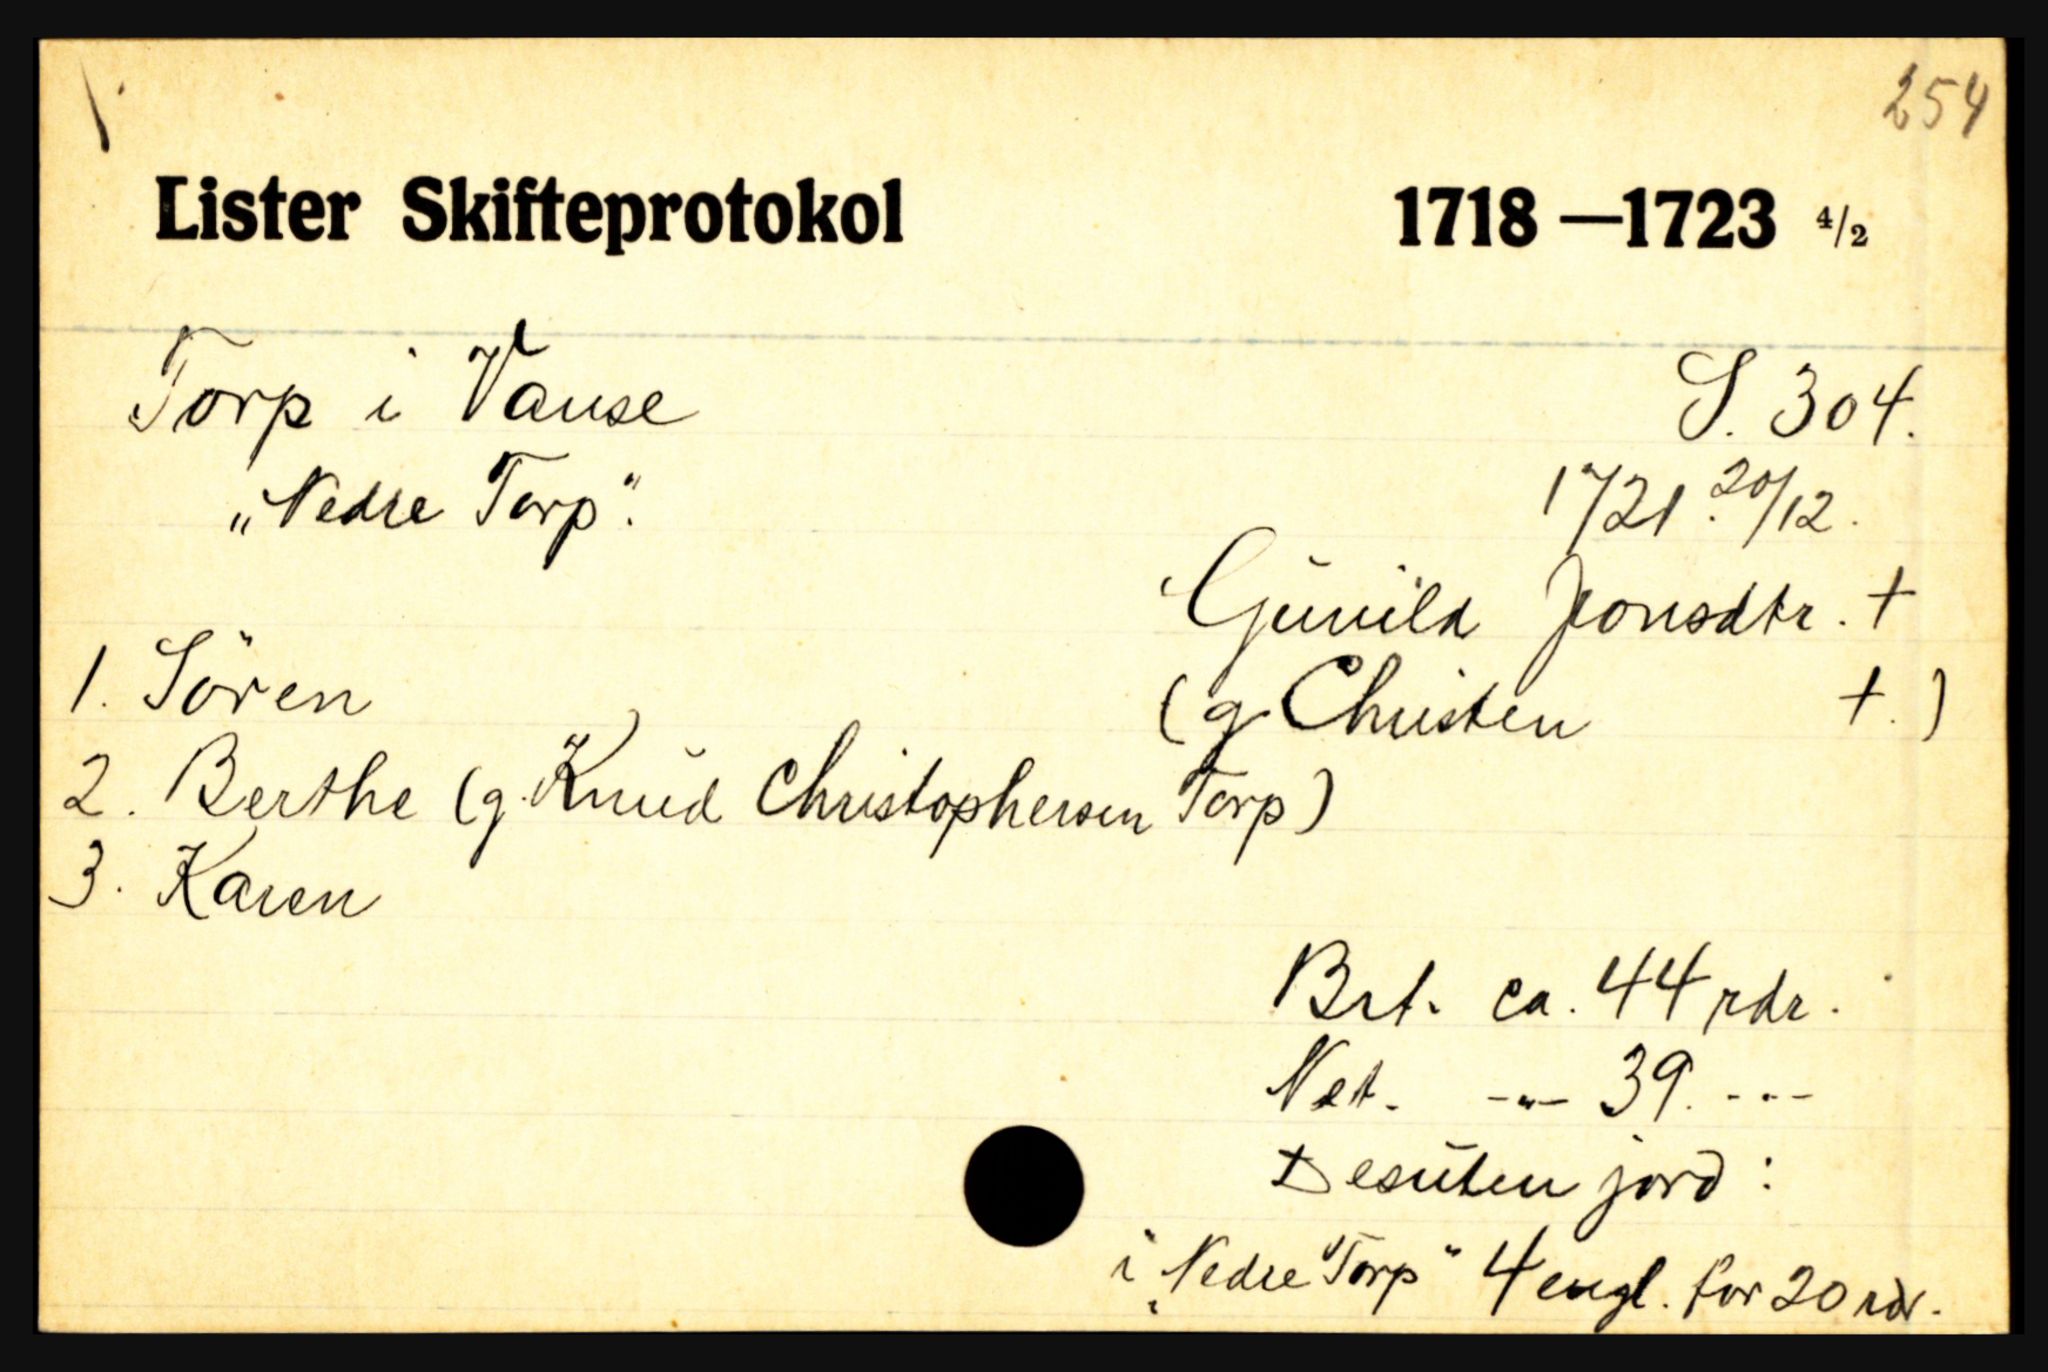 254
Lister Skifteprotokol 1718—1723 4/2
Torp i Vanse S. 304.
„Nedre Torp". 1721. 20/12.
Gunild Jonsdtr. +
1. Sören (g Christen +.)
2. Berthe (g. Knud Christophersen Torp)
3. Karen
Brt. ca. 44 rdr.
Net. -"- 39. -"-
Desuten jord:
i „Nedre Torp" 4 engl. for 20 rdr.